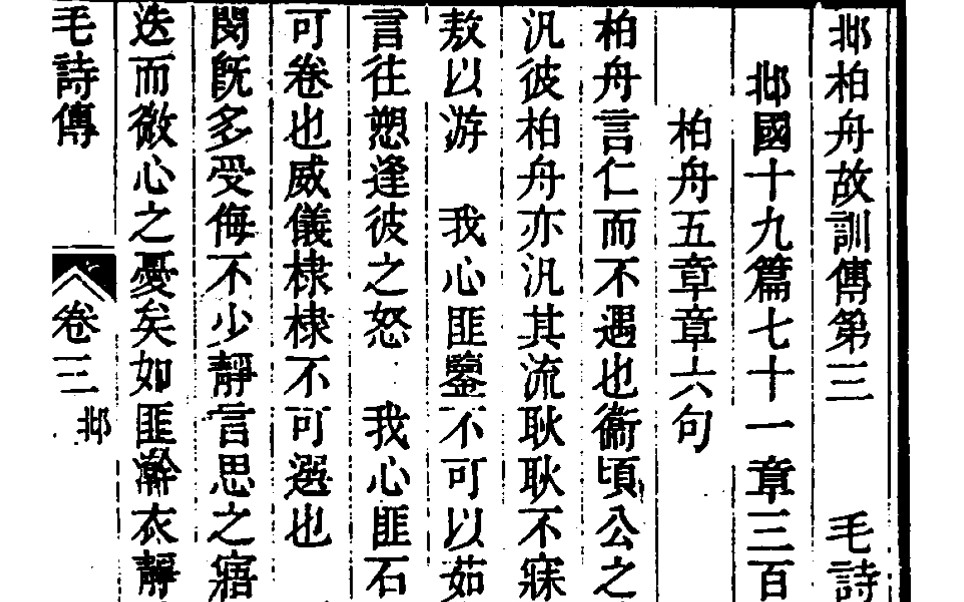 邶柏舟故訓傳第三 毛詩
邶國十九篇七十一章三百
柏舟五章章六句
柏舟言仁而不遇也衞頃公之
汎彼柏舟亦汎其流耿耿不寐
敖以游 我心匪鑒不可以茹
言往愬逢彼之怒 我心匪石
可卷也威儀棣棣不可選也
閔旣多受侮不少靜言思之寤
迭而微心之憂矣如匪澣衣靜
毛詩傳 卷三 邶